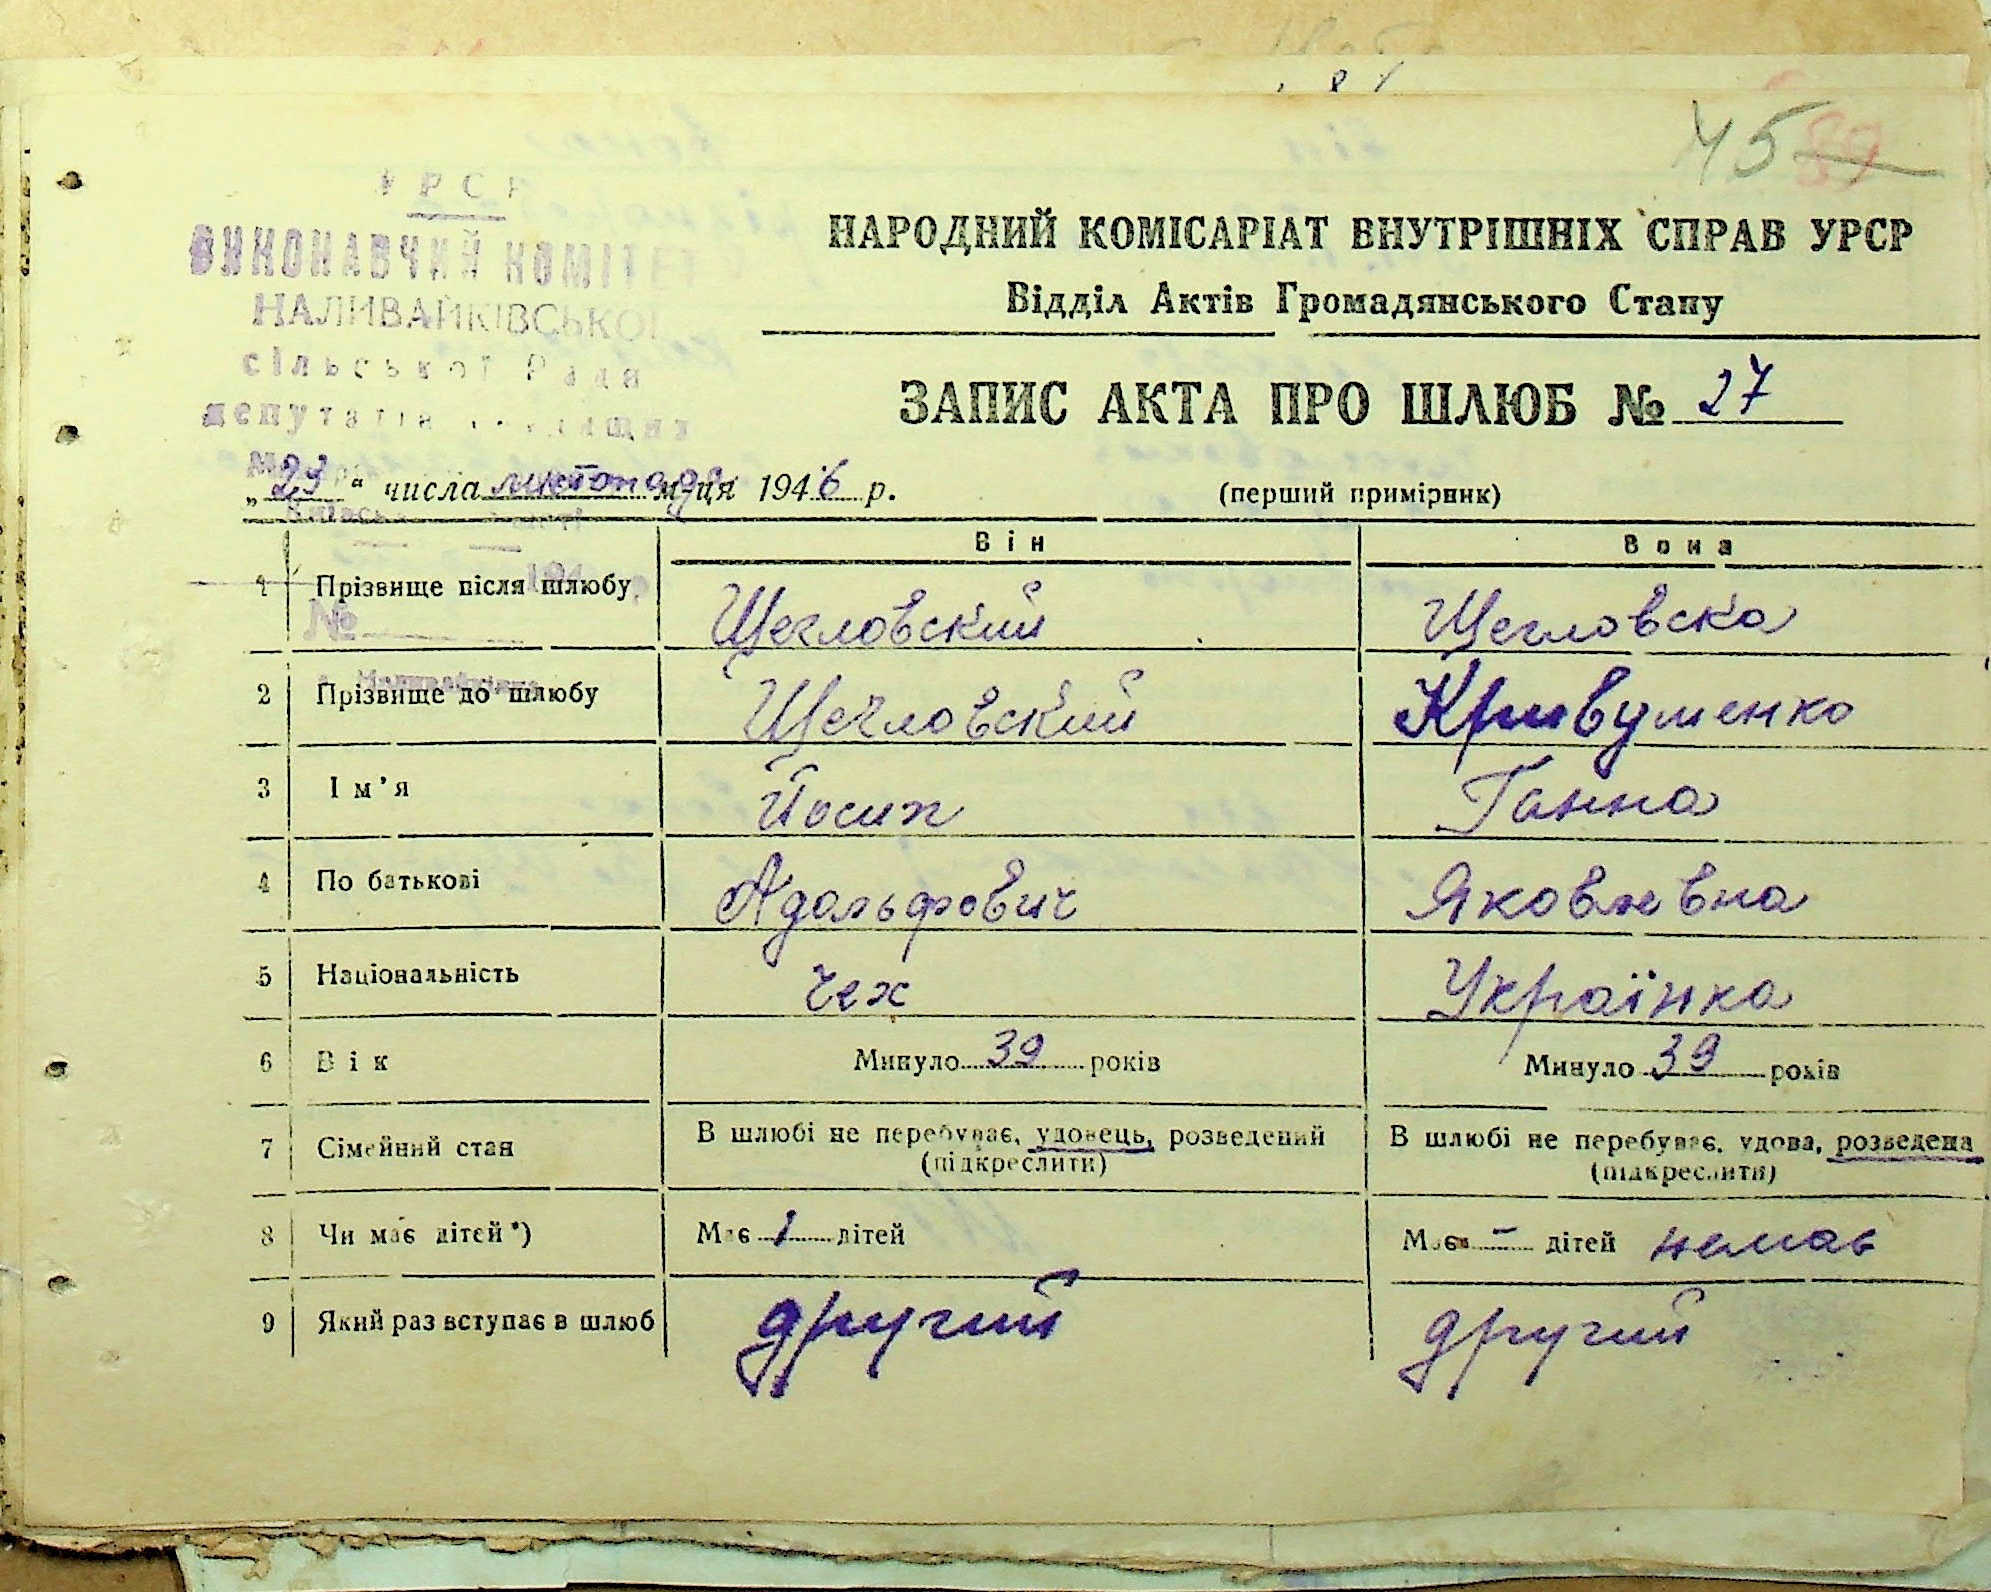 45
УРСР
ВИКОНАВЧИЙ КОМІТЕТ
НАЛИВАЙКІВСЬКОЇ
сільської Ради
депутатів трудящих
НАРОДНИЙ КОМІСАРІАТ ВНУТРІШНІХ СПРАВ УРСР
Відділ Актів Громадянського Стану
ЗАПИС АКТА ПРО ШЛЮБ № 27
„23“ числа листопада м-ця 1946 р.
(перший примірник)
Він Вона
1 Прізвище після шлюбу Щегловский Щегловска
№
2 Прізвище до шлюбу Щегловский Кривушенко
3 Ім’я Йосип Ганна
4 По батькові Адольфович Яковлевна
5 Національність Чех Українка
6 Вік Минуло 39 років Минуло 39 років
7 Сімейний стан В шлюбі не перебуває, удовець, розведений В шлюбі не перебуває, удова, розведена
(підкреслити) (підкреслити)
8 Чи має дітей*) Має 1 дітей Має – дітей немає
9 Який раз вступає в шлюб другий другий